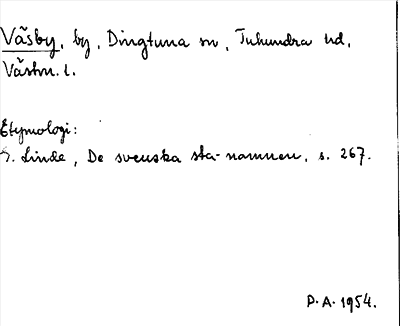 Väsby, by, Dingtuna sn, Tuhundra hd,
Västm. l.
Etymologi:
G. Linde, De svenska sta-namnen, s. 267.
P.A. 1954.